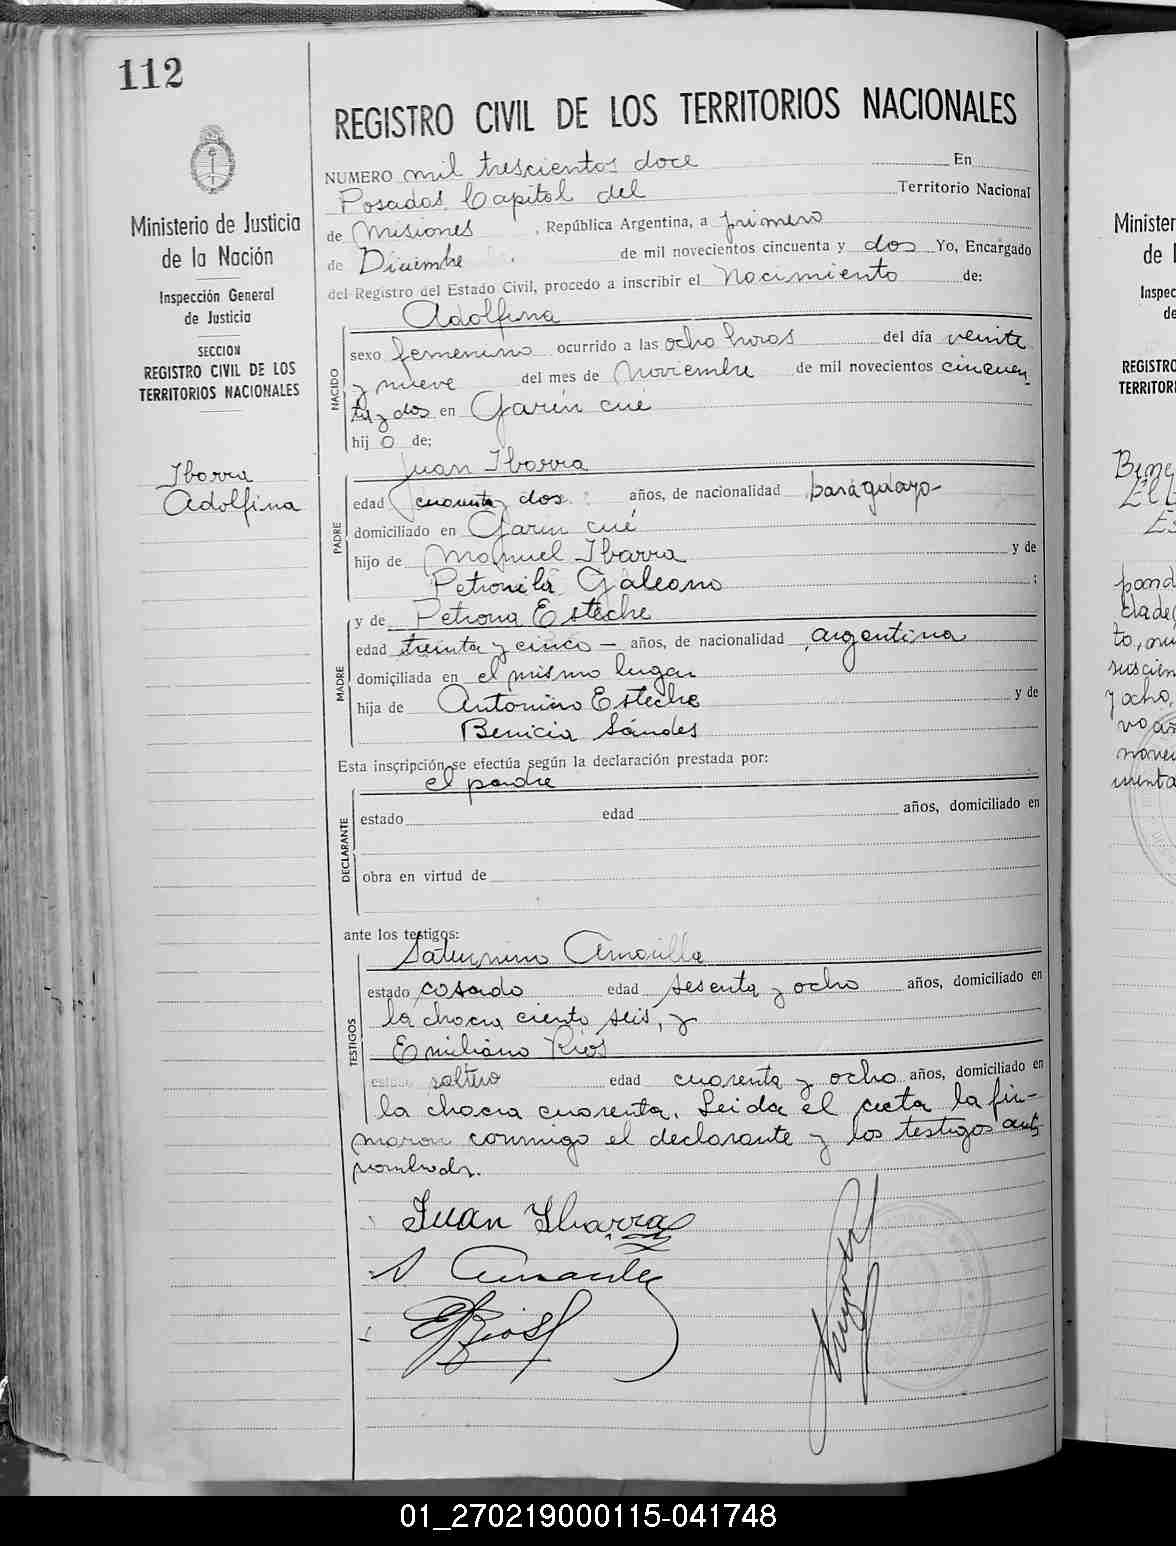 112
REGISTRO CIVIL DE LOS TERRITORIOS NACIONALES
Ministerio de Justicia
de la Nación
Inspección General
de Justicia
SECCION
REGISTRO CIVIL DE LOS
TERRITORIOS NACIONALES
Ibarra
Adolfina
NUMERO mil trescientos doce En
Posadas Capital del Territorio Nacional
de Misiones, República Argentina, a primero
de Diciembre de mil novecientos cincuenta y dos Yo, Encargado
del Registro del Estado Civil, procedo a inscribir el Nacimiento de:
Adolfina
NACIDO
sexo femenino ocurrido a las ocho horas del día veinte
y nueve del mes de Noviembre de mil novecientos cincuen
ta y dos en Garin cue
hij o de:
Juan Ibarra
PADRE
edad cuarenta y dos años, de nacionalidad paraguayo-
domiciliado en Garin cué
hijo de Manuel Ibarra y de
Petronila Galeano ;
y de Petrona Esteche
MADRE
edad treinta y cinco - años, de nacionalidad argentina
domiciliada en el mismo lugar
hija de Antonino Esteche y de
Benicia Sándes
Esta inscripción se efectúa según la declaración prestada por:
el padre
DECLARANTE
estado edad años, domiciliado en
obra en virtud de
ante los testigos:
Saturnino Amarilla
TESTIGOS
estado casado edad sesenta y ocho años, domiciliado en
la chacra ciento seis, y
Emiliano Rios
estado soltero edad cuarenta y ocho años, domiciliado en
la chacra cuarenta. Leida el acta la fir-
maron conmigo el declarante y los testigos ante
nombrados.
Juan Ibarra
S Amarilla
E Rios
Minister
de l
Inspec
de
REGISTRO
TERRITORI
01_270219000115-041748